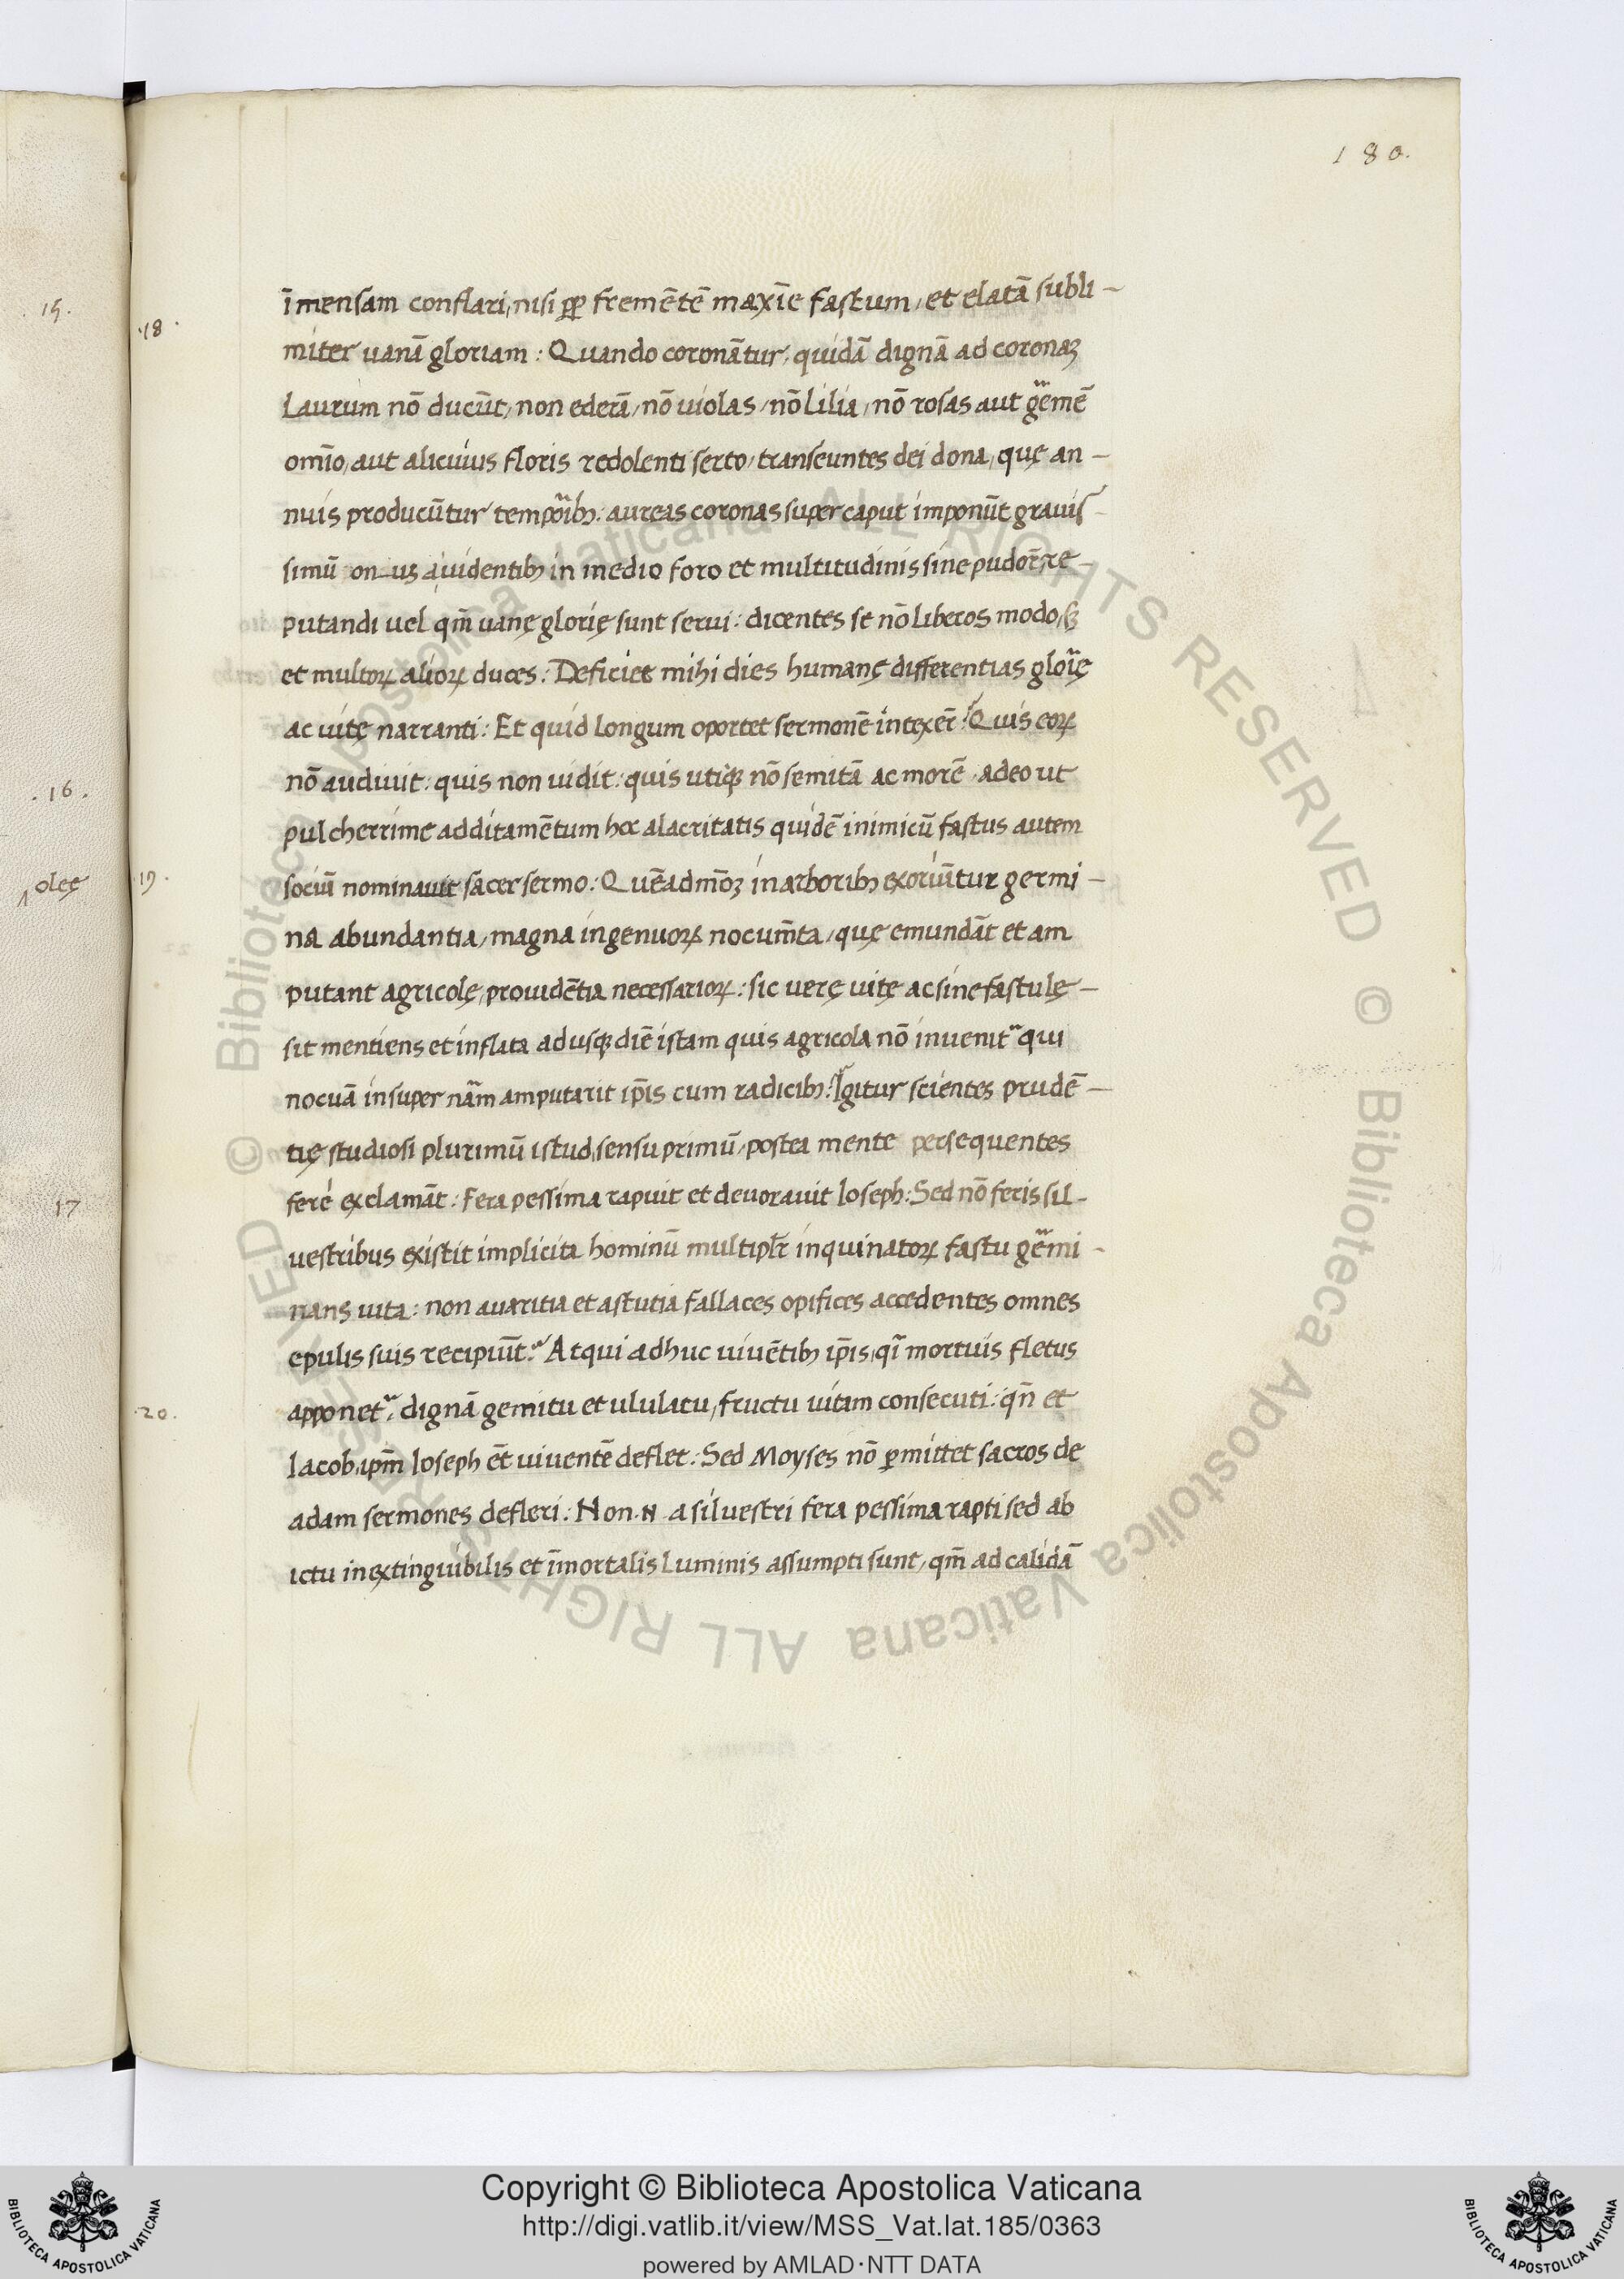 180.
īmensam conflari, nisi ꝓp fremētē maxīe fastum, et elatā subli-
·18· miter uanā gloriam: Quando coronātur, quidā dignā ad coronaꝫ
Laurum nō ducūt, non ederā, nō uiolas, nō Lilia, nō rosas aut gēmē
omīo, aut alicuius floris redolenti serto, transeuntes dei dona, quę an-
nuis producūtur tempoībꝫ: aureas coronas super caput imponūt grauiſ-
simū onus, uidentibꝫ in medio foro et multitudinis sine pudoř, re-
putandi uel qm̄ uanę glorię sunt serui: dicentes se nō Liberos modo, sꝫ
et multoꝝ alioꝝ duces: Deficiet mihi dies humanę differentias gloīę
ac uitę narranti: Et quid Longum oportet sermonē intexeř? Quis eoꝝ
nō audiuit: quis non uidit: quis utiqꝫ nō semitā ac morē, adeo ut
pulcherrime additamētum hoc alacritatis quidē inimicū fastus autem
·19· sociū nominauit sacer sermo: Quēadmōꝫ in arboribꝫ exoriūtur germi-
na abundantia, magna ingenuoꝝ nocum̄ta, quę emundāt et am
putant agricolę, prouidētia necessarioꝝ: sic uerę uitę ac sine fastu lę-
sit mentiens et inflata ad usqꝫ diē istam quis agricola nō inuenit᷑ qui
nocuā insuper nām amputarit ip̄is cum radicibꝫ? Igitur scientes prudē-
tię studiosi plurimū istud, sensu primū, postea mente persequentes
feré exclamāt: Fera pessima rapuit et deuorauit Ioseph: Sed nō feris sil-
uestribus existit implicita hominū multipłr inquinatoꝝ fastu gēmi-
nans uita: non auaritia et astutia fallaces opifices accedentes omnes
epulis suis recipiūt? Atqui adhuc uiuētibꝫ ip̄is, qī mortuis fletus
·20· apponet᷑, dignā gemitu et ululatu, fructu uitam consecuti: qn̄ et
Iacob, ipm̄ Ioseph ēt uiuentē deflet: Sed Moyses nō ꝑmittet sacros de
adam sermones defleri: Non .N. a siluestri fera pessima rapti sed ab
ictu inextinguibilis et īmortalis Luminis assumpti sunt, qm̄ ad calidā
15.
.16.
olee
17
© Biblioteca Apostolica Vaticana ALL RIGHTS RESERVED © Biblioteca Apostolica Vaticana ALL RIGHTS RESERVED
Copyright © Biblioteca Apostolica Vaticana
http://digi.vatlib.it/view/MSS_Vat.lat.185/0363
powered by AMLAD·NTT DATA
BIBLIOTECA APOSTOLICA VATICANA
BIBLIOTECA APOSTOLICA VATICANA